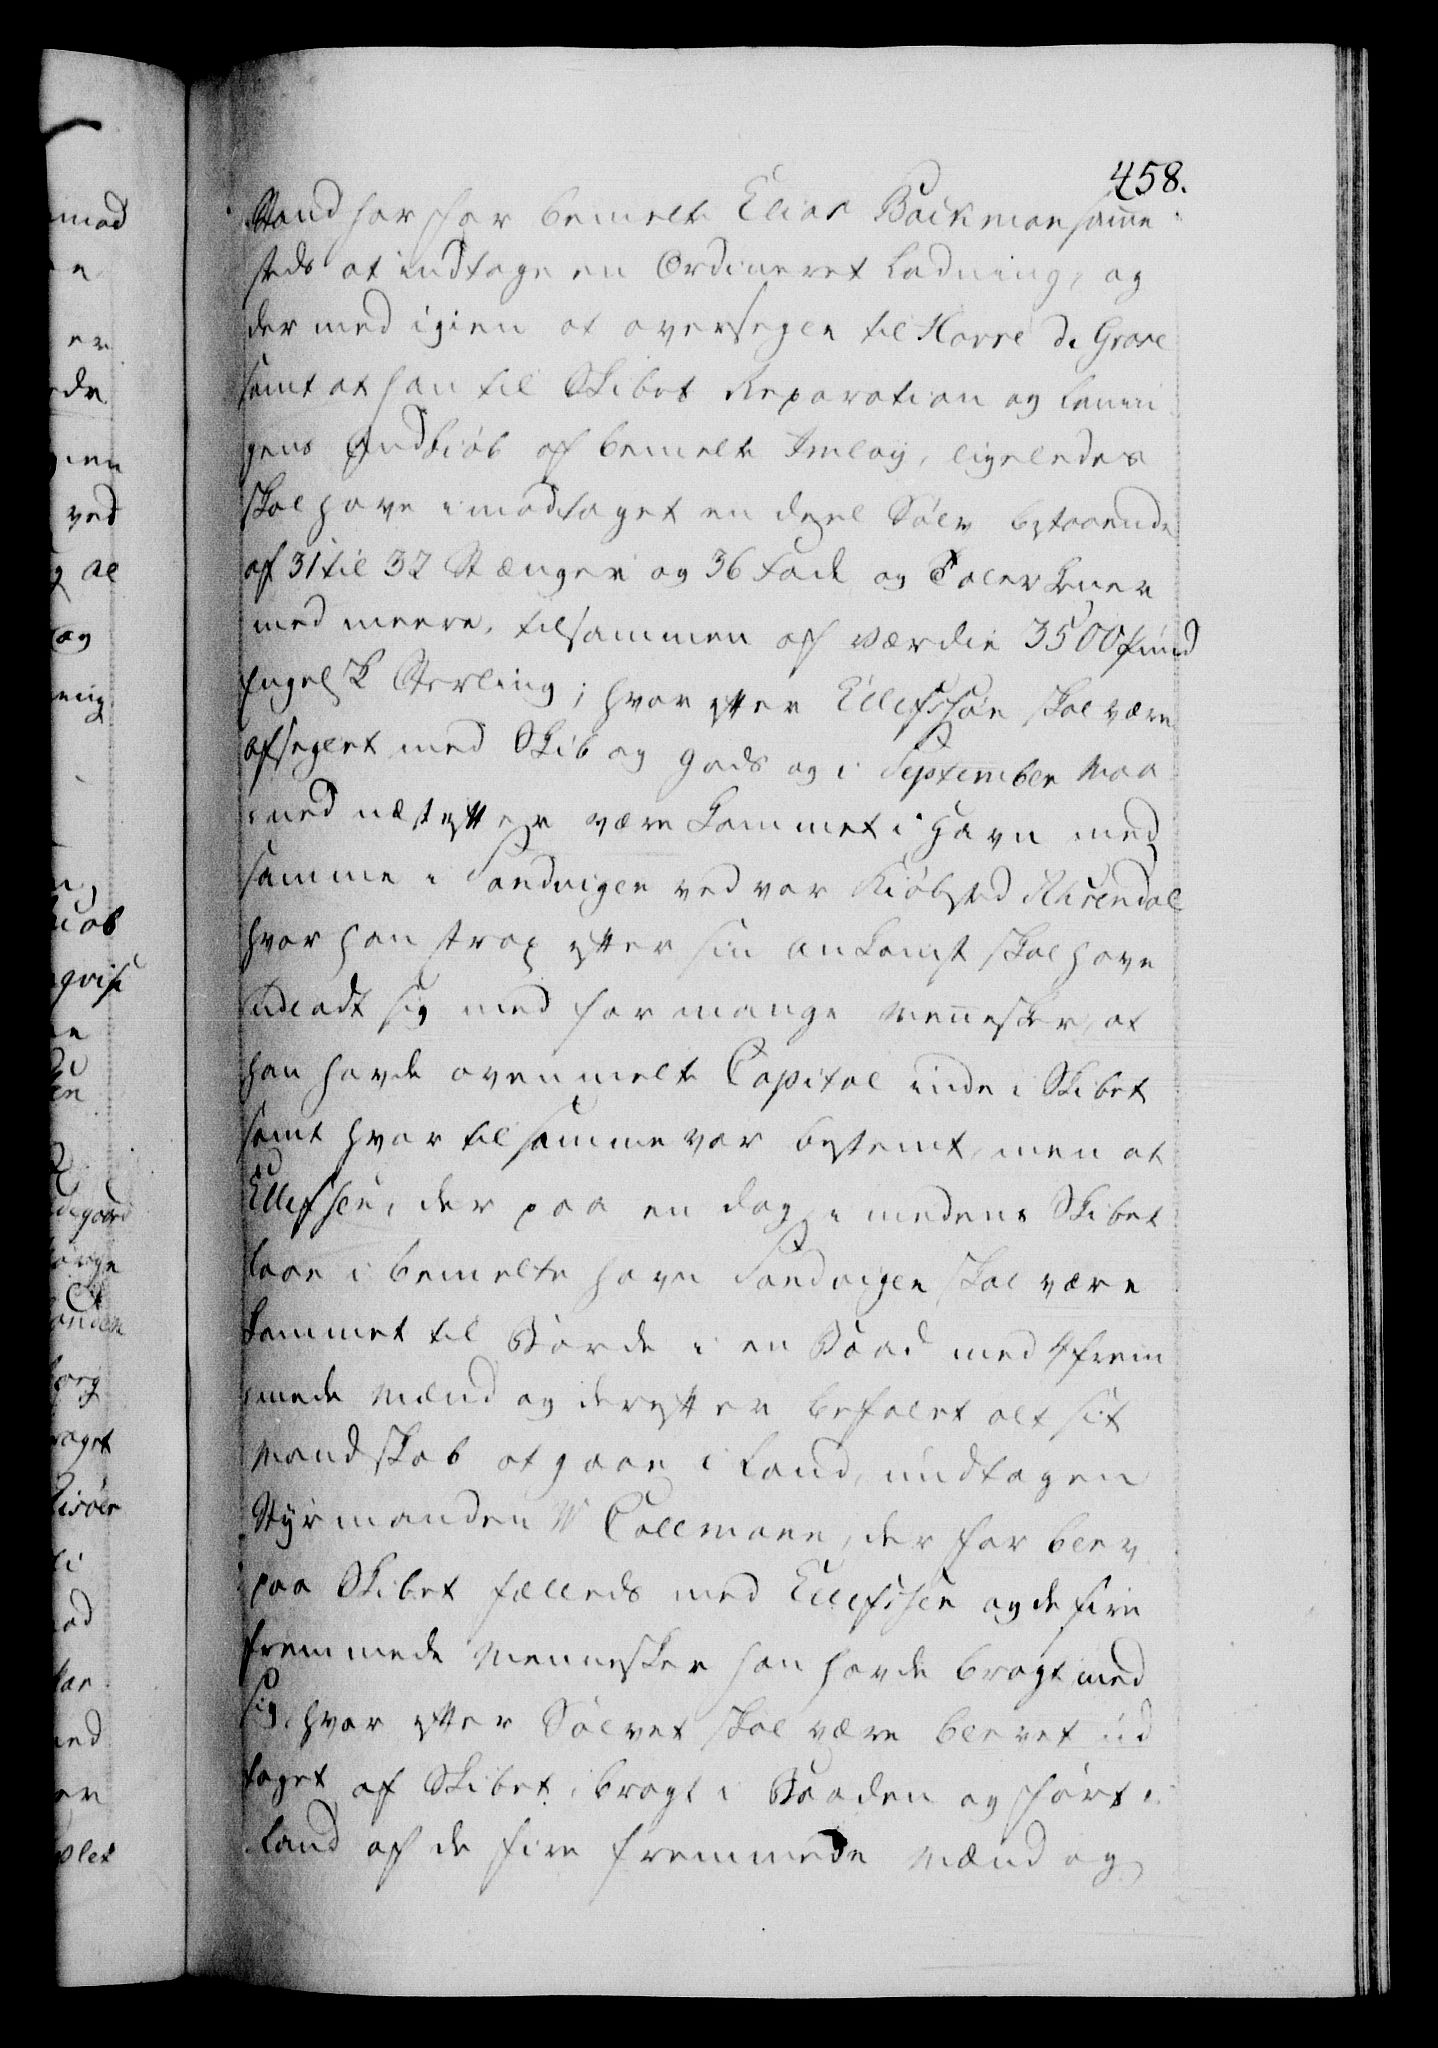 458.
Stand hos for bemelte Elias Backman samme
steds at indtage en Ordineret Ladning, og
der med igien at overseyle til Havre de Grace
samt at han til Skibets Reparation og Ladnin
gens Indkiøb af bemelte Imlay, ligeledes
skal have imodtaget en deel Sølv bestaaende
af 31 til 32 Stænger og 36 Fade og Tallerkener
med meere, tilsammen af værdie 3500 pund
Engelsk Sterling; hvorefter Ellefssøn skal være
afseglet med Skib og Gods og i September Maa
ned næstefter være kommet i Havn med
samme i Sandvigen ved vor Kiøbsted Arendal
hvor han strax efter sin ankomst skal have
udladt sig med for mange Mennesker, at
han havde ovenmelte Capital inde i Skibet
samt hvor til samme var bestemt, men at
Ellefsen, der paa en dag, imedens Skibet
laae i bemelte havn Sandvigen, skal være
kommet til Borde i en Baad med 4 frem
mede Mænd og derefter befalet alt sit
Mandskab at gaae i Land, undtagen
Styrmanden Collmann, der forblev
paa Skibet fælleds med Ellefsen og de fire
fremmede Mennesker han havde bragt med
sig, hvorefter Sølvet skal være blevet ud
taget af Skibet, bragt i Baaden og ført i
Land af de fire fremmede Mænd og